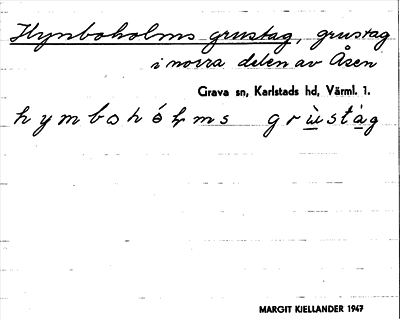 Hynboholms grustag, grustag
i norra delen av Åsen
Grava sn, Karlstads hd, Värml. l.
hymbohólms grùstàg
MARGIT KJELLANDER 1947